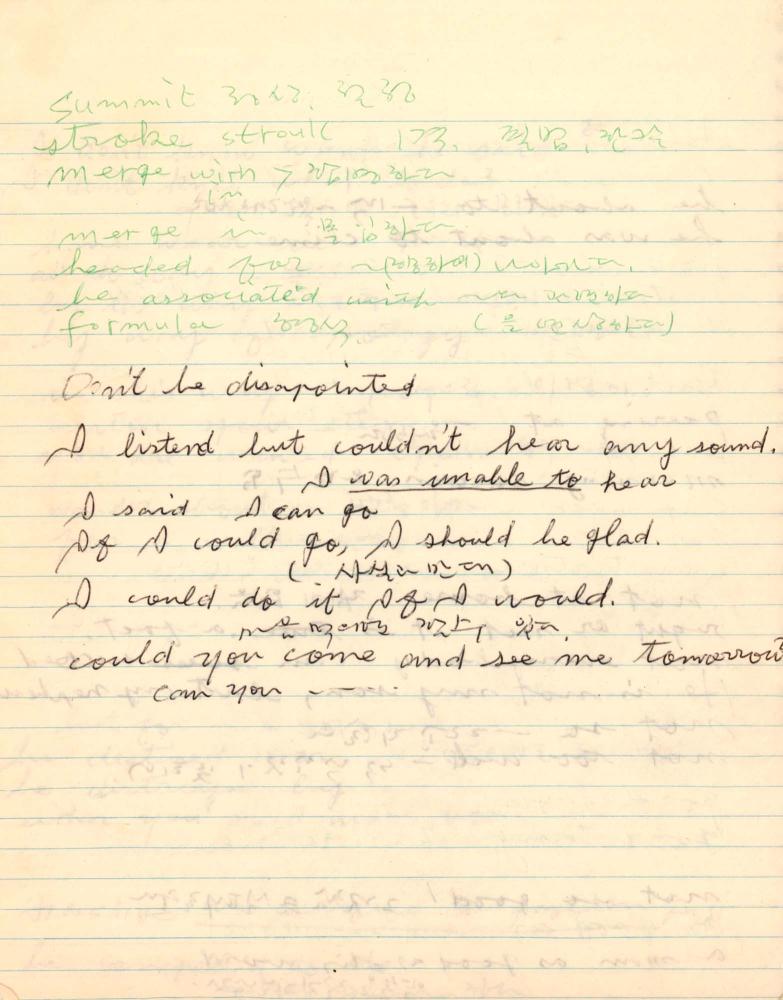 Summit 정상,
stroke stroulc 필법,
merge with > 합병하다
in
merge in 몰입하다
headed for ~(향하여) 나아가다.
be associated with ~와 관련하다
formula 형식 (을 연상하다)
Don't be disapointed
I listend but couldn't hear any sound.
I was unable to hear
I said I can go
If I could go, I should be glad.
(사실의 반대)
I could do it If I would.
마음 먹으면 할 수 있다.
could you come and see me tomorrow
can you - - - - .